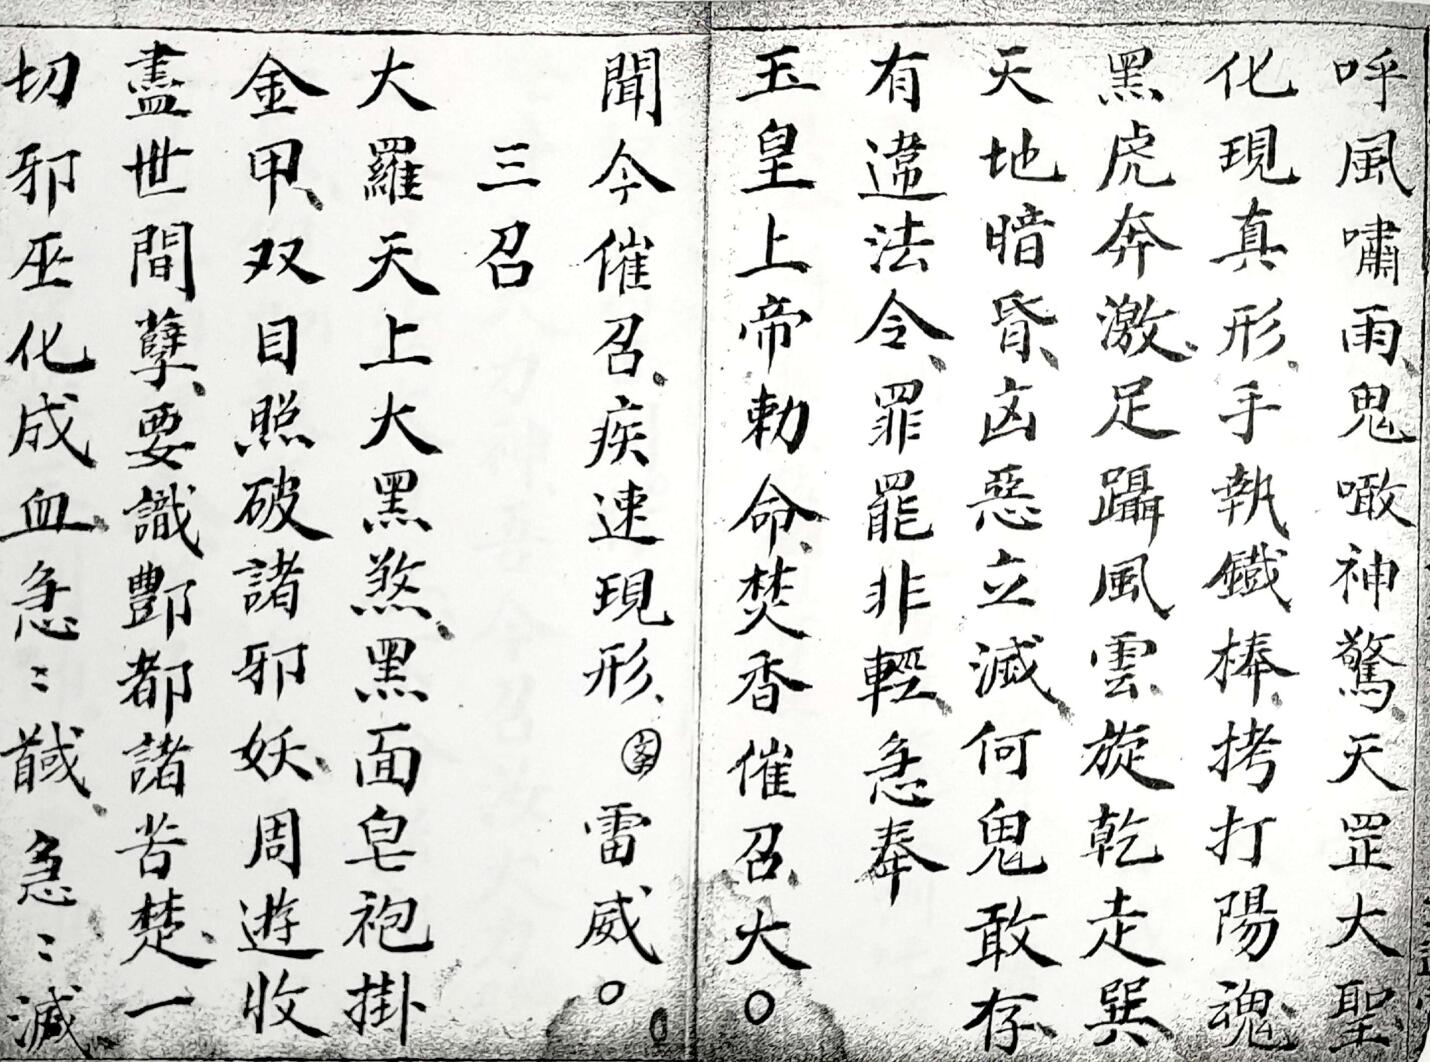 呼風嘯雨、鬼噉神驚、天罡大聖、
化現真形、手執鐵棒、拷打陽魂、
黑虎奔激、足躡風雲、旋乾走巽
天地暗昏、凶惡立滅、何鬼敢存、
有違法令、罪罷非輕、急奉
玉皇上帝勅命、焚香催召大。
聞今催召、疾速現形、雷威。
三召
大羅天上大黑煞、黑面皂袍掛
金甲、双目照破諸邪妖、周遊收
盡世間孽、要識酆都諸苦楚、一
切邪巫化成血、急:馘、急:滅